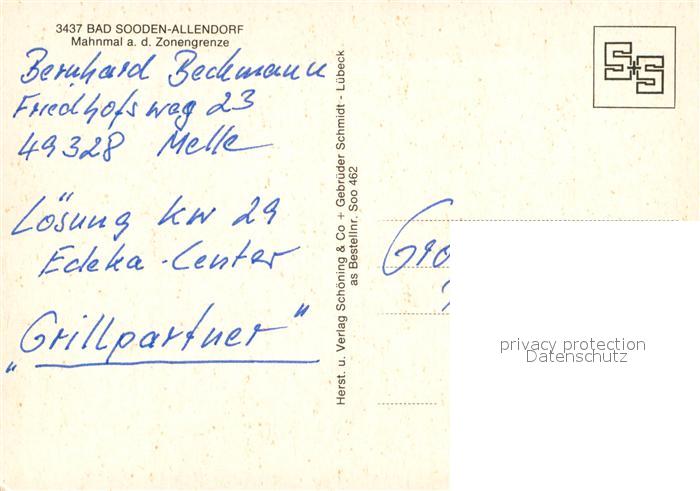 3437 BAD SOODEN-ALLENDORF
Mahnmal a. d. Zonengrenze
Bernhard Beckmann
Friedhofsweg 23
49328 Melle
Lösung KW 29
Edeka-Center
„Grillpartner"
Herst. u. Verlag Schöning & Co + Gebrüder Schmidt - Lübeck
as Bestellnr. Soo 462
S+S
privacy protection
Datenschutz